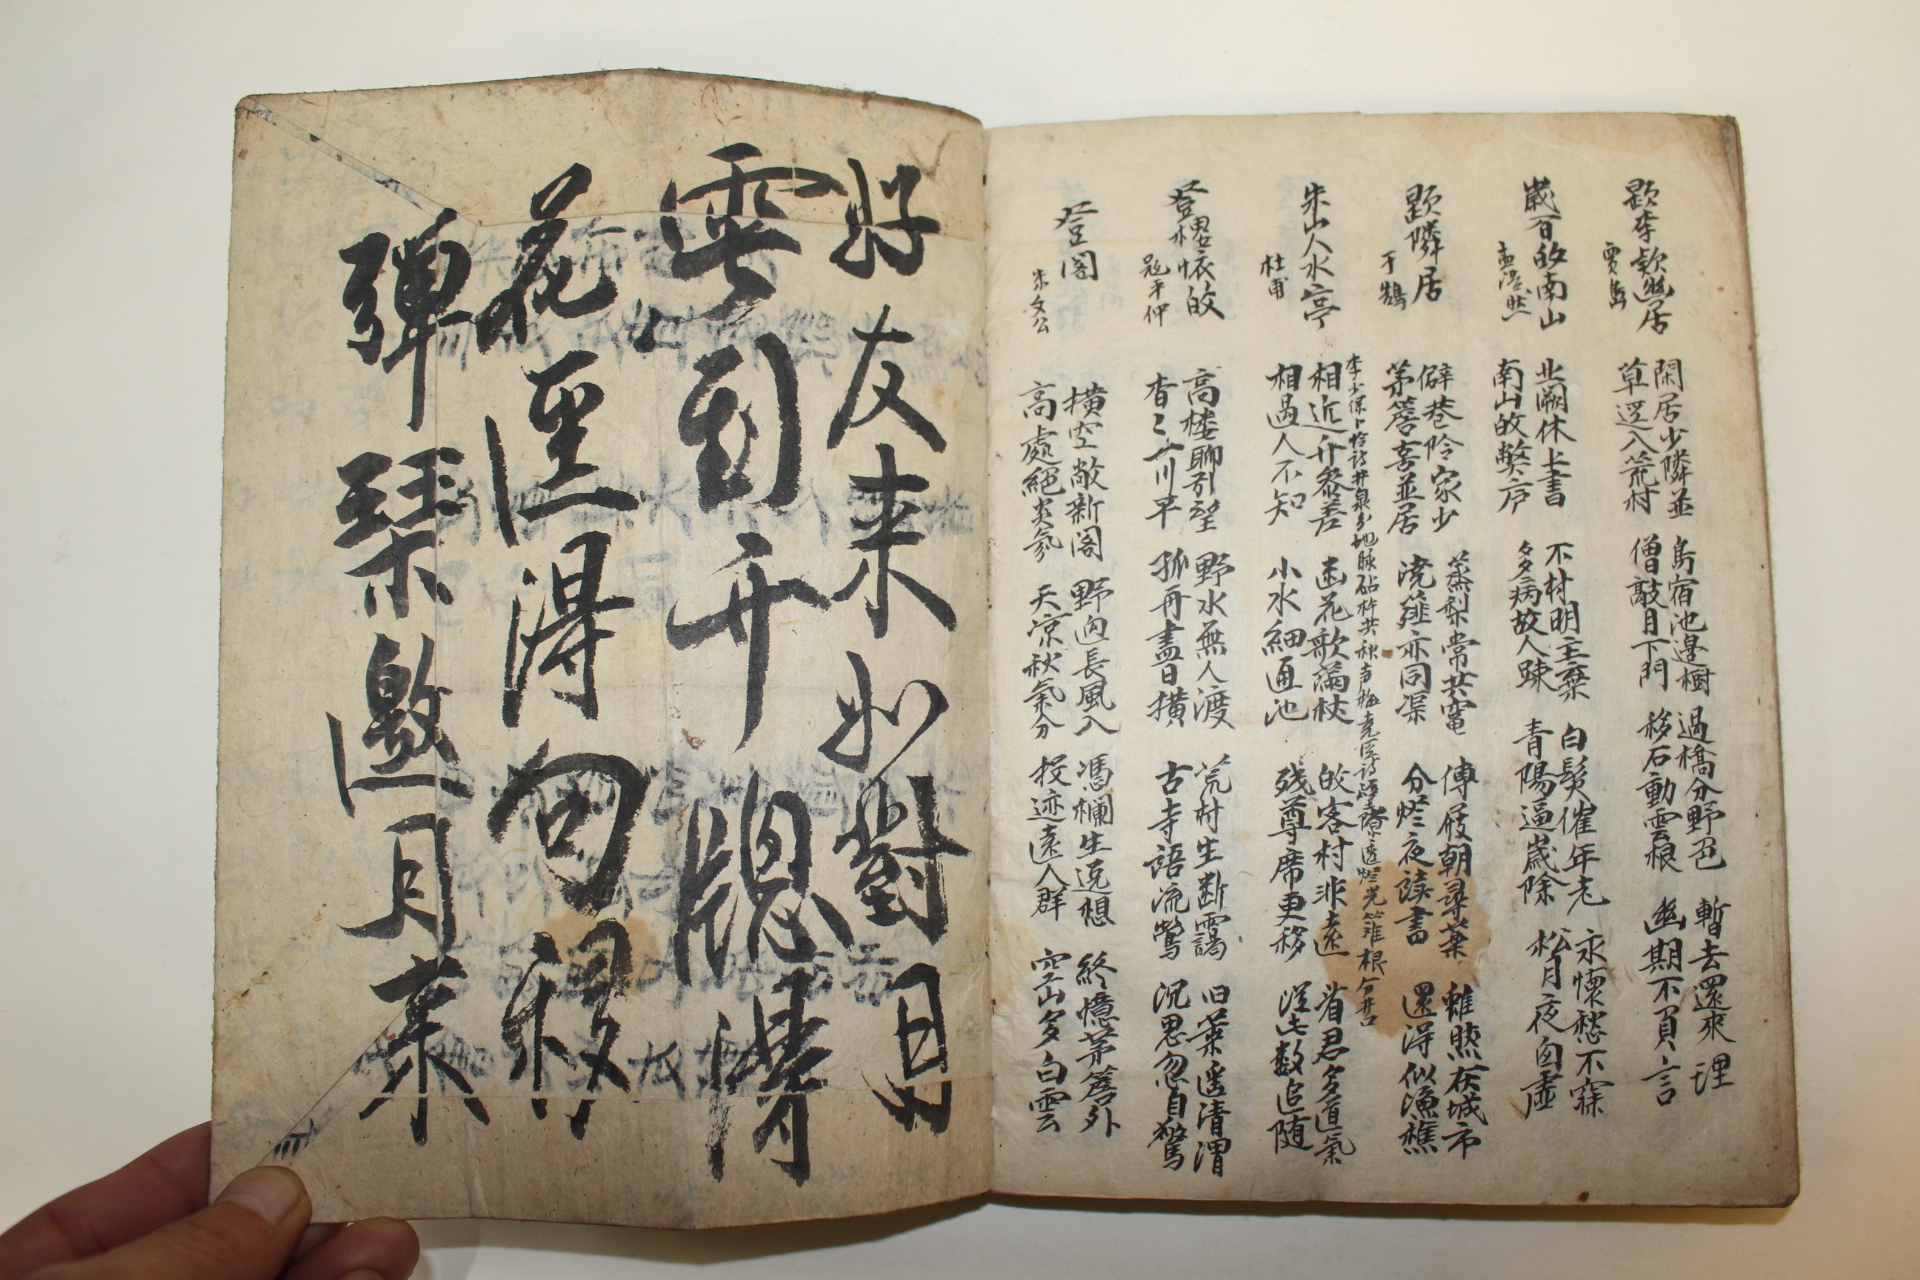 題李欵幽居
賈島
閑居少隣並 鳥宿池邊樹 過橋分野色 暫去還來理
草逕入荒村 僧敲月下門 移石動雲根 幽期不負言
歲百皈南山
孟浩然
北闕休上書 不材明主棄 白髮催年老 永懷愁不寐
南山皈獘庐 多病故人踈 青陽逼歲除 松月夜囱虛
題隣居
于鵠
僻巷阾家少 蒸梨常共竈 傳屐朝尋藥 雖然在城市
茅簷喜並居 澆薤亦同渠 分灯夜讀書 還得似漁樵
李少保卜恰詩井泉分地脉砧杵共秋声梅克臣詩透灯光籬根分井口
朱山人水亭
杜甫
相近竹參差 花歌滿枝 皈客村非遠 看君多道氣
相過人不知 小水細通池 殘尊席更移 從此數追随
登楼懷皈
寇平仲
高楼聊引望 野水無人渡 荒村生断靄 旧業遙清渭
杳〻一川平 孤舟盡日橫 古寺語流鶯 沉思忽自驚
登閣
朱文公
橫空敞新閣 野逈長風入 憑欄生遠想 終憶茅簷外
高處絕炎氛 天凉秋氣分 投迹遠人群 空山多白雲
好友来如對
雲到竹牕
花逕得句移
彈琴邀月來